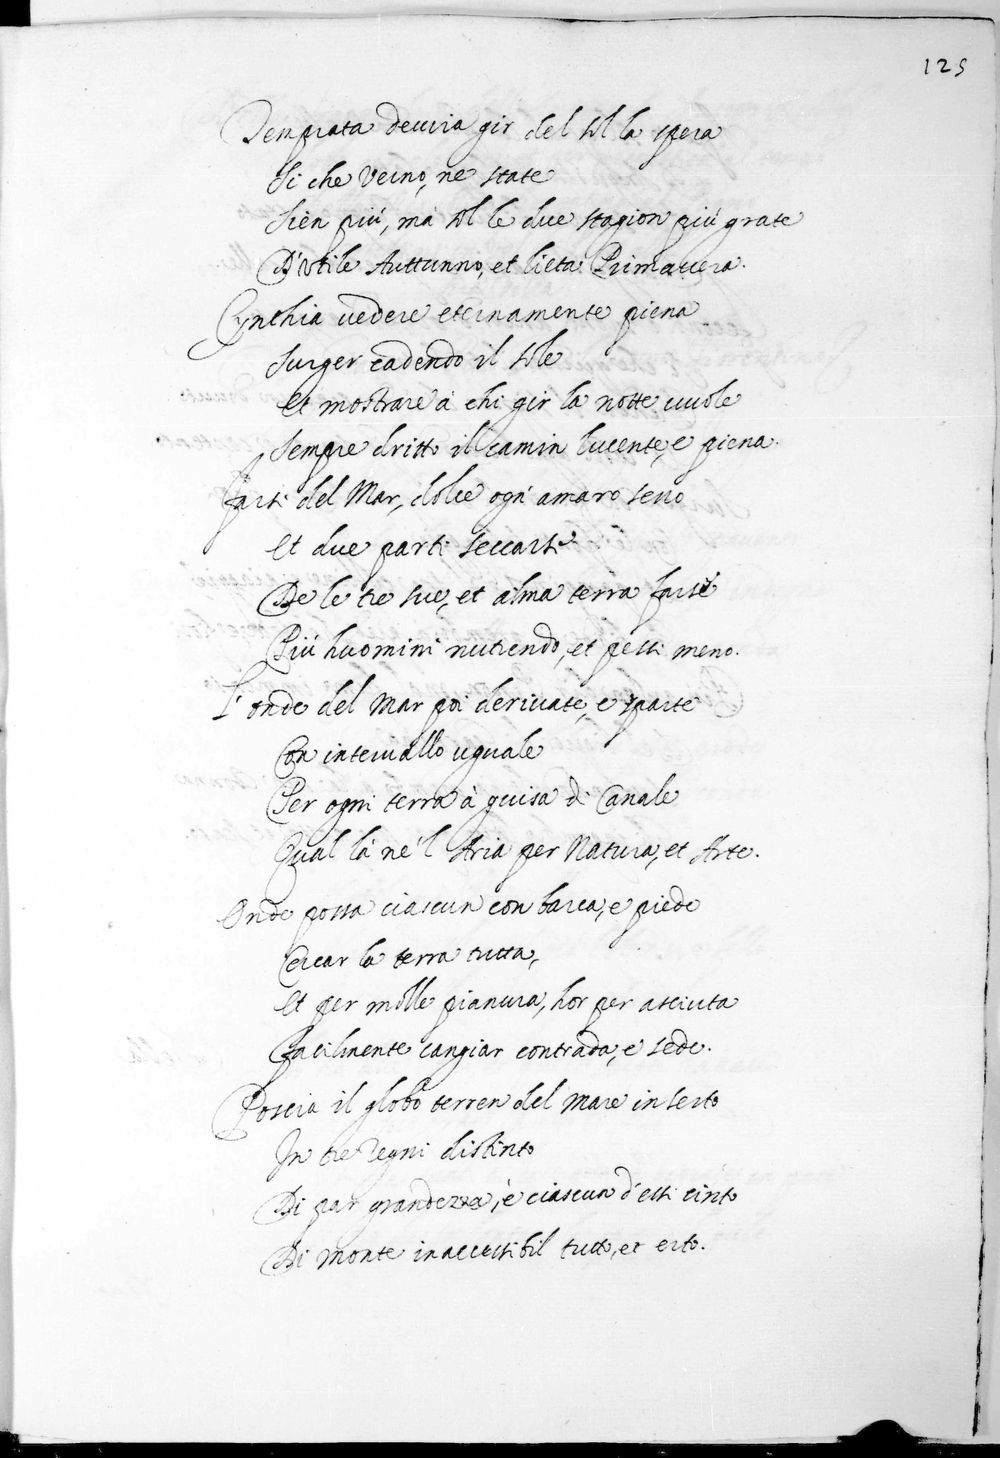 125
Temprata deuria gir del sol la spera
Si che Verno, ne state
Sien più, mà sol le due stagion più grate
D'Vtile Auttunno, et lieta Primauera.
Cynthia uedere eternamente piena
Surger cadendo il sole
Et mostrare à chi gir la notte uuole
Sempre dritto il camin lucente, e piena.
Farsi del Mar, dolce ogn' amaro seno
Et due parti seccarsi
De le tre sue, et alma terra farsi
Più huomini nutrendo, et pesci meno.
L'onde del Mar poi deriuate, e sparte
Con interuallo uguale
Per ogni terra à guisa di Canale
Qual là ne'l Aria per Natura, et Arte.
Onde possa ciascun con barca, e piede
Cercar la terra tutta,
Et per molle pianura, hor per asciutta
Facilmente cangiar contrada, e sede.
Poscia il globo terren del Mare in serto
In tre Regni distinto
Di par grandezza, e ciascun d'essi cinto
Di monte inaccessibil tutto, et erto.